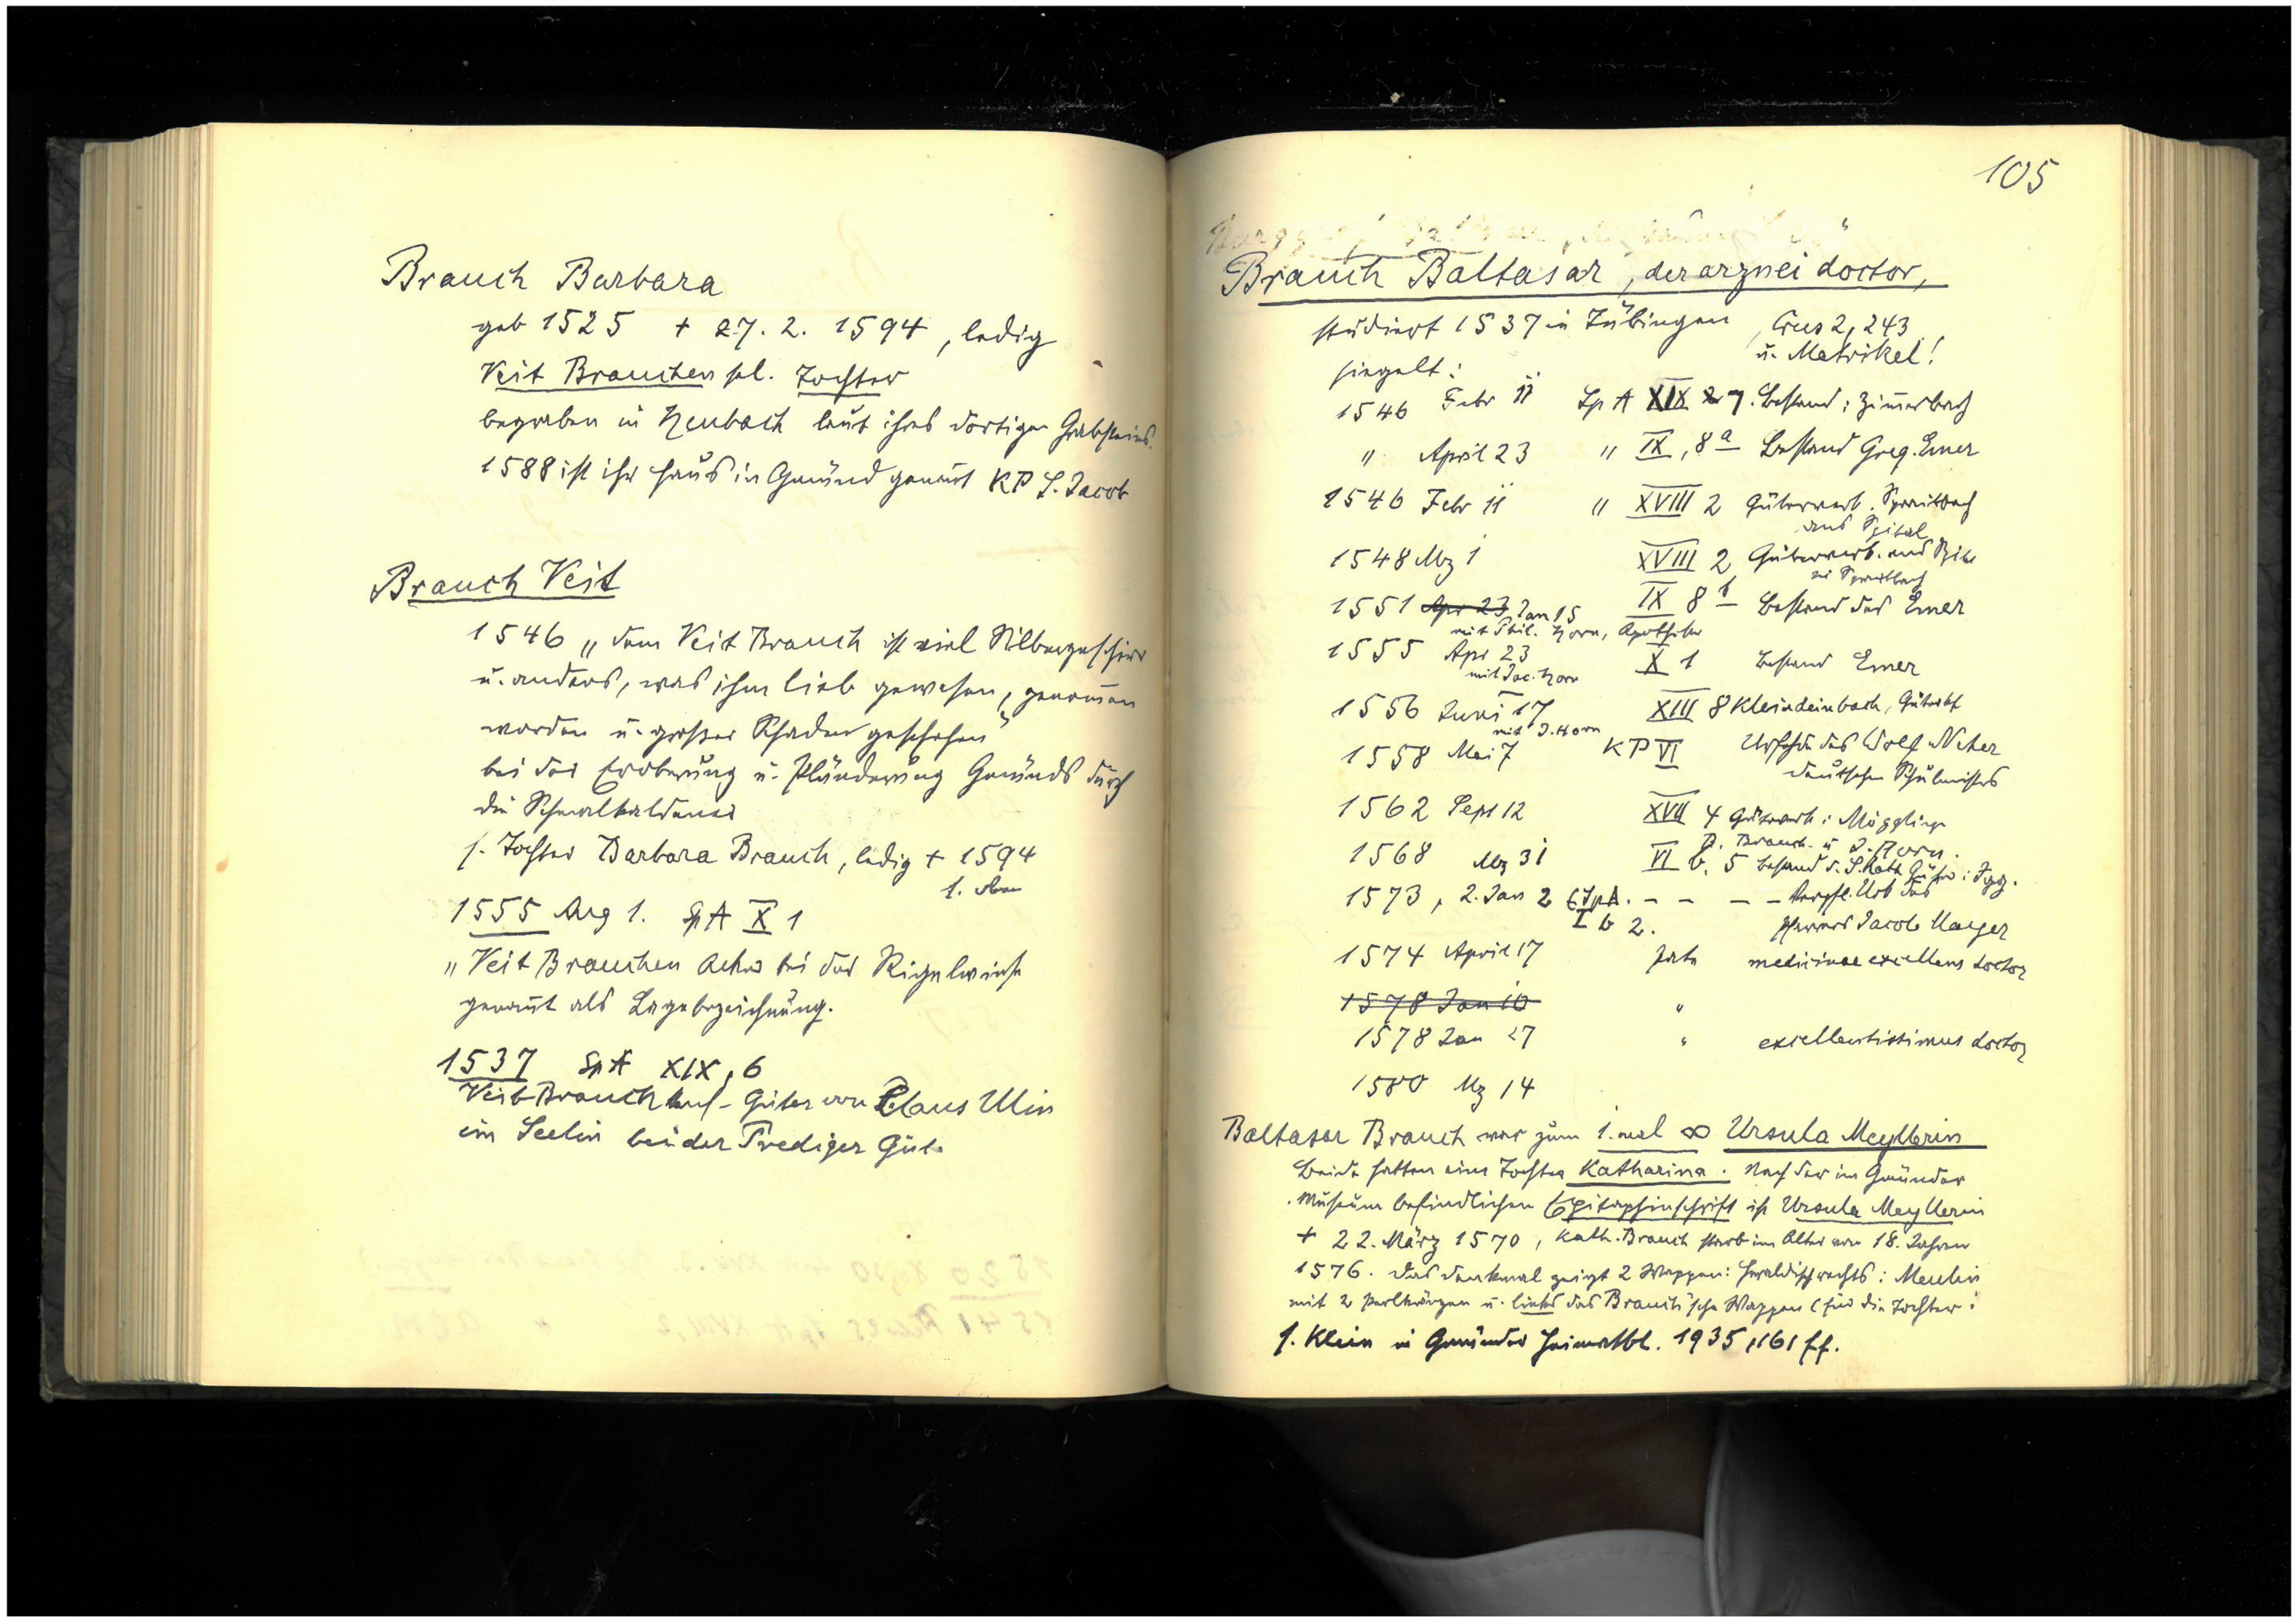 Brauch Barbara
geb 1525 + 27. 2. 1594, ledig
Veit Brauchen sel. Tochter
begraben in Heubach laut ihres dortigen Grabsteins.
1588 ist ihr Haus in Gmünd genannt KP S. Jacob
Brauch Veit
1546 „dem Veit Brauch ist viel Silbergeschirr
u. anders, was ihm lieb gewesen, genom̄en
worden u. großer Schaden geschehen"
bei der Eroberung u. Plünderung Gmünds durch
die Schmalkaldener
s. Tochter Barbara Brauch, ledig + 1594
s. oben
1555 Aug 1. SpA X 1
„Veit Brauchen Acker bei der Rigelwiese
genan̄t als Lagebezeichnung.
1537 SpA XIX, 6
Veit Brauch kauf- Güter von Claus Ulin
im Seelin bei der Prediger Güt.
105
Brauch Baltasar, der arznei doctor,
studiert 1537 in Tübingen, Crus 2, 243
u. Matrikel!
siegelt:
1546 Febr 11 Sp A XIX 7. Bestand: Zim̄erbach
" April 23 " IX, 8a Bestand Greg. Emer
1546 Febr 11 " XVIII 2 Güterverk. Spraitbach
ans Spital
1548 Mz 1 XVIII 2 Güterverk. ans Spital
in Spraitbach
1551 Apr 23 Jan 15 IX 8b Bestand des Emer
mit Phil. Horn, Apotheker
1555 Apr 23 X 1 Bestand Emer
mit Jac. Horn
1556 Juni 17 XIII 8 Kleindeinbach, Güterkf
mit J. Horn
1558 Mai 7 KP VI Urfehde des Wolf Neher
deutschen Schulmeisters
1562 Sept 12 XVII 4 Güterverk: Mögglingen
B. Brauch u J. Horn.
1568 Mz 31 VI b. 5 Bestand d. S. Kath Güter: Igg.
1573, 2. Jan 2 SpA. - - - - Verpfl. Urk des
I b 2. Pfarrers Jacob Mayer
1574 April 17 Pate medicinae excellens doctor
1578 Jan 10 "
1578 Jan 27 " excellentissimus doctor
1580 Mz 14
Baltasar Brauch war zum 1. mal ∞ Ursula Meyllerin
Beide hatten eine Tochter Katharina. Nach der im Gmünder
Museum befindlichen Epitaphinschrift ist Ursula Meyllerin
+ 22. März 1570, Kath. Brauch starb im Alter von 18. Jahren
1576. Das Denkmal zeigt 2 Wappen: heraldisch rechts: Meulin
mit 2 und links das Brauch'sche Wappen (für die Tochter.
s. Klein in Gmünder Heimatbl. 1935, 161 ff.